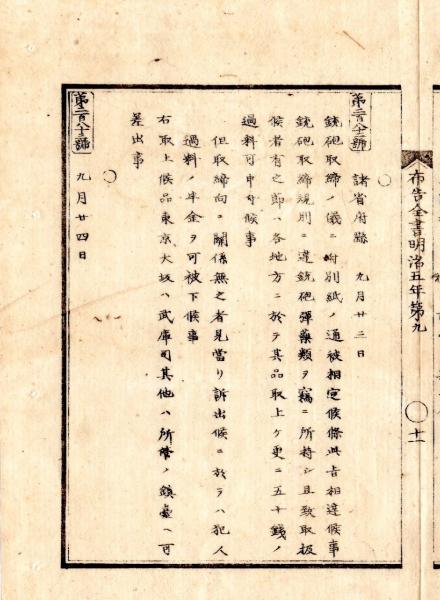 布告全書明治五年第九
十一
第二百八十二號
諸省府縣 九月廿三日
銃砲取締ノ儀ニ付別紙ノ通被相定候條此旨相達候事
銃砲取締規則ニ違銃砲彈藥類ヲ竊ニ所持シ且致取扱
候者有之節ハ各地方ニ於テ其品取上ケ更ニ五十錢ノ
過料可申付候事
但取締向ニ關係無之者見當リ訴出候ニ於テハ犯人
過料ノ半金ヲ可被下候事
右取上候品東京大坂ハ武庫司其他ハ所管ノ鎮臺ヘ可
差出事
○
第二百八十三號
九月廿四日